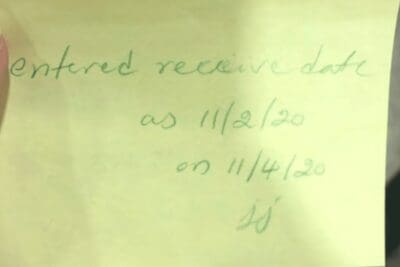 entered receive date
as 11/2/20
on 11/4/20
jj